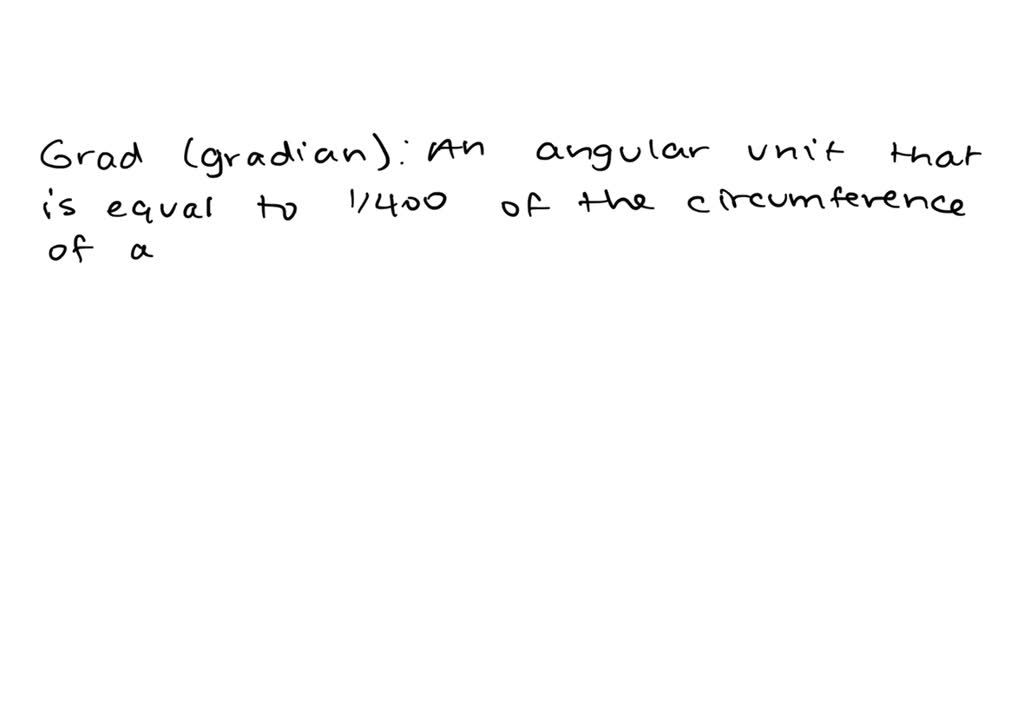 Grad (gradian): An angular unit that
is equal to 1/400 of the circumference
of a